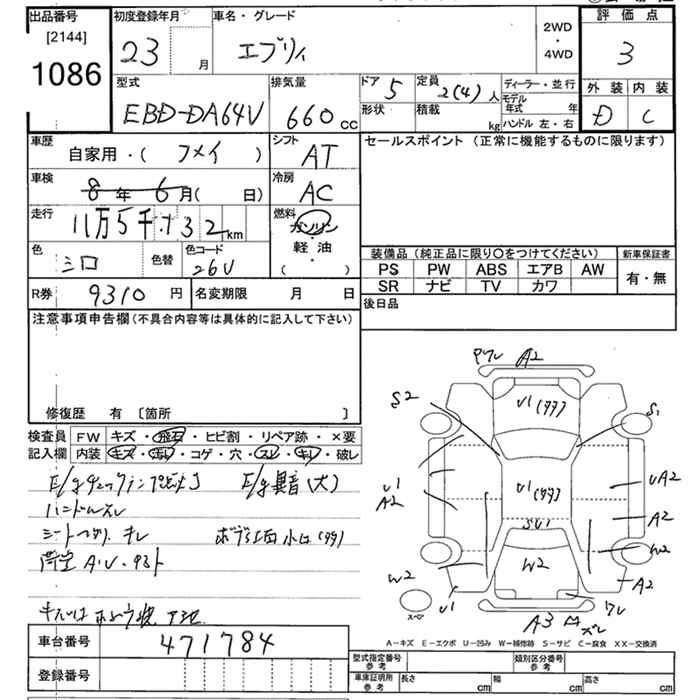 出品番号
[2144]
1086
初度登録年月
23 月
車名・グレード
エブリィ
2WD
・
4WD
評価点
3
外装 内装
D C
型式
EBD-DA64V
排気量
660 cc
ドア 5
定員 2(4) 人
ディーラー・並行
形状
積載 kg
モデル年式 年
ハンドル 左・右
車歴
自家用・( )
シフト
AT
セールスポイント (正常に機能するものに限ります)
車検
8年 6月( 日)
冷房
AC
走行
11万5千132km
燃料
ガソリン
・
軽油
( )
色
シロ
色替
色コード
26U
装備品 (純正品に限り○をつけてください)
新車保証書
PS PW ABS エアB AW
SR ナビ TV カワ
有・無
R券 9310 円
名変期限 月 日
後日品
注意事項申告欄 (不具合内容等は具体的に記入して下さい)
修復歴 有 〔箇所 〕
検査員記入欄
FW キズ・飛石・ヒビ割・リペア跡・×要
内装 キズ・汚レ・コゲ・穴・スレ・キレ・破レ
E/g異音(大)
ハンドルスレ
A2
S2
S1
U1
U1
A2
UA2
A2
W2
W2
W2
A2
U1
A3
スペア
A-キズ E-エクボ U-凹み W-補修跡 S-サビ C-腐食 XX-交換済
車台番号
471784
登録番号
型式指定番号
参考
類別区分番号
参考
車庫証明所
参考
長さ cm
幅 cm
高さ cm